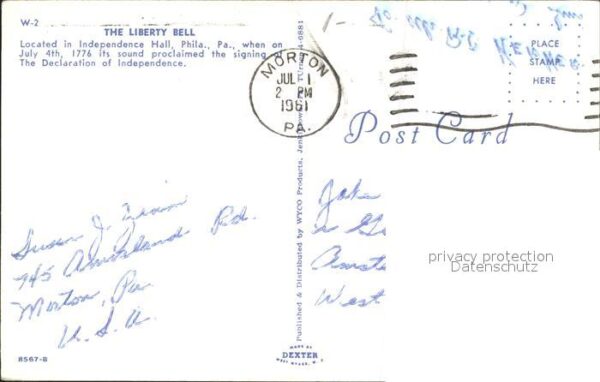 W-2
THE LIBERTY BELL
Located in Independence Hall, Phila., Pa., when on
July 4th, 1776 its sound proclaimed the signing of
The Declaration of Independence.
MORTON
JUL 1
2 PM
1961
PA.
PLACE
STAMP
HERE
Post Card
Susan J.
745 Rd.
Morton, Pa
U. S. A.
Published & Distributed by WYCO Products, Jenkintown,
Jake
Amste
West
privacy protection
Datenschutz
MADE BY
DEXTER
WEST NYACK, N.Y.
8567-B